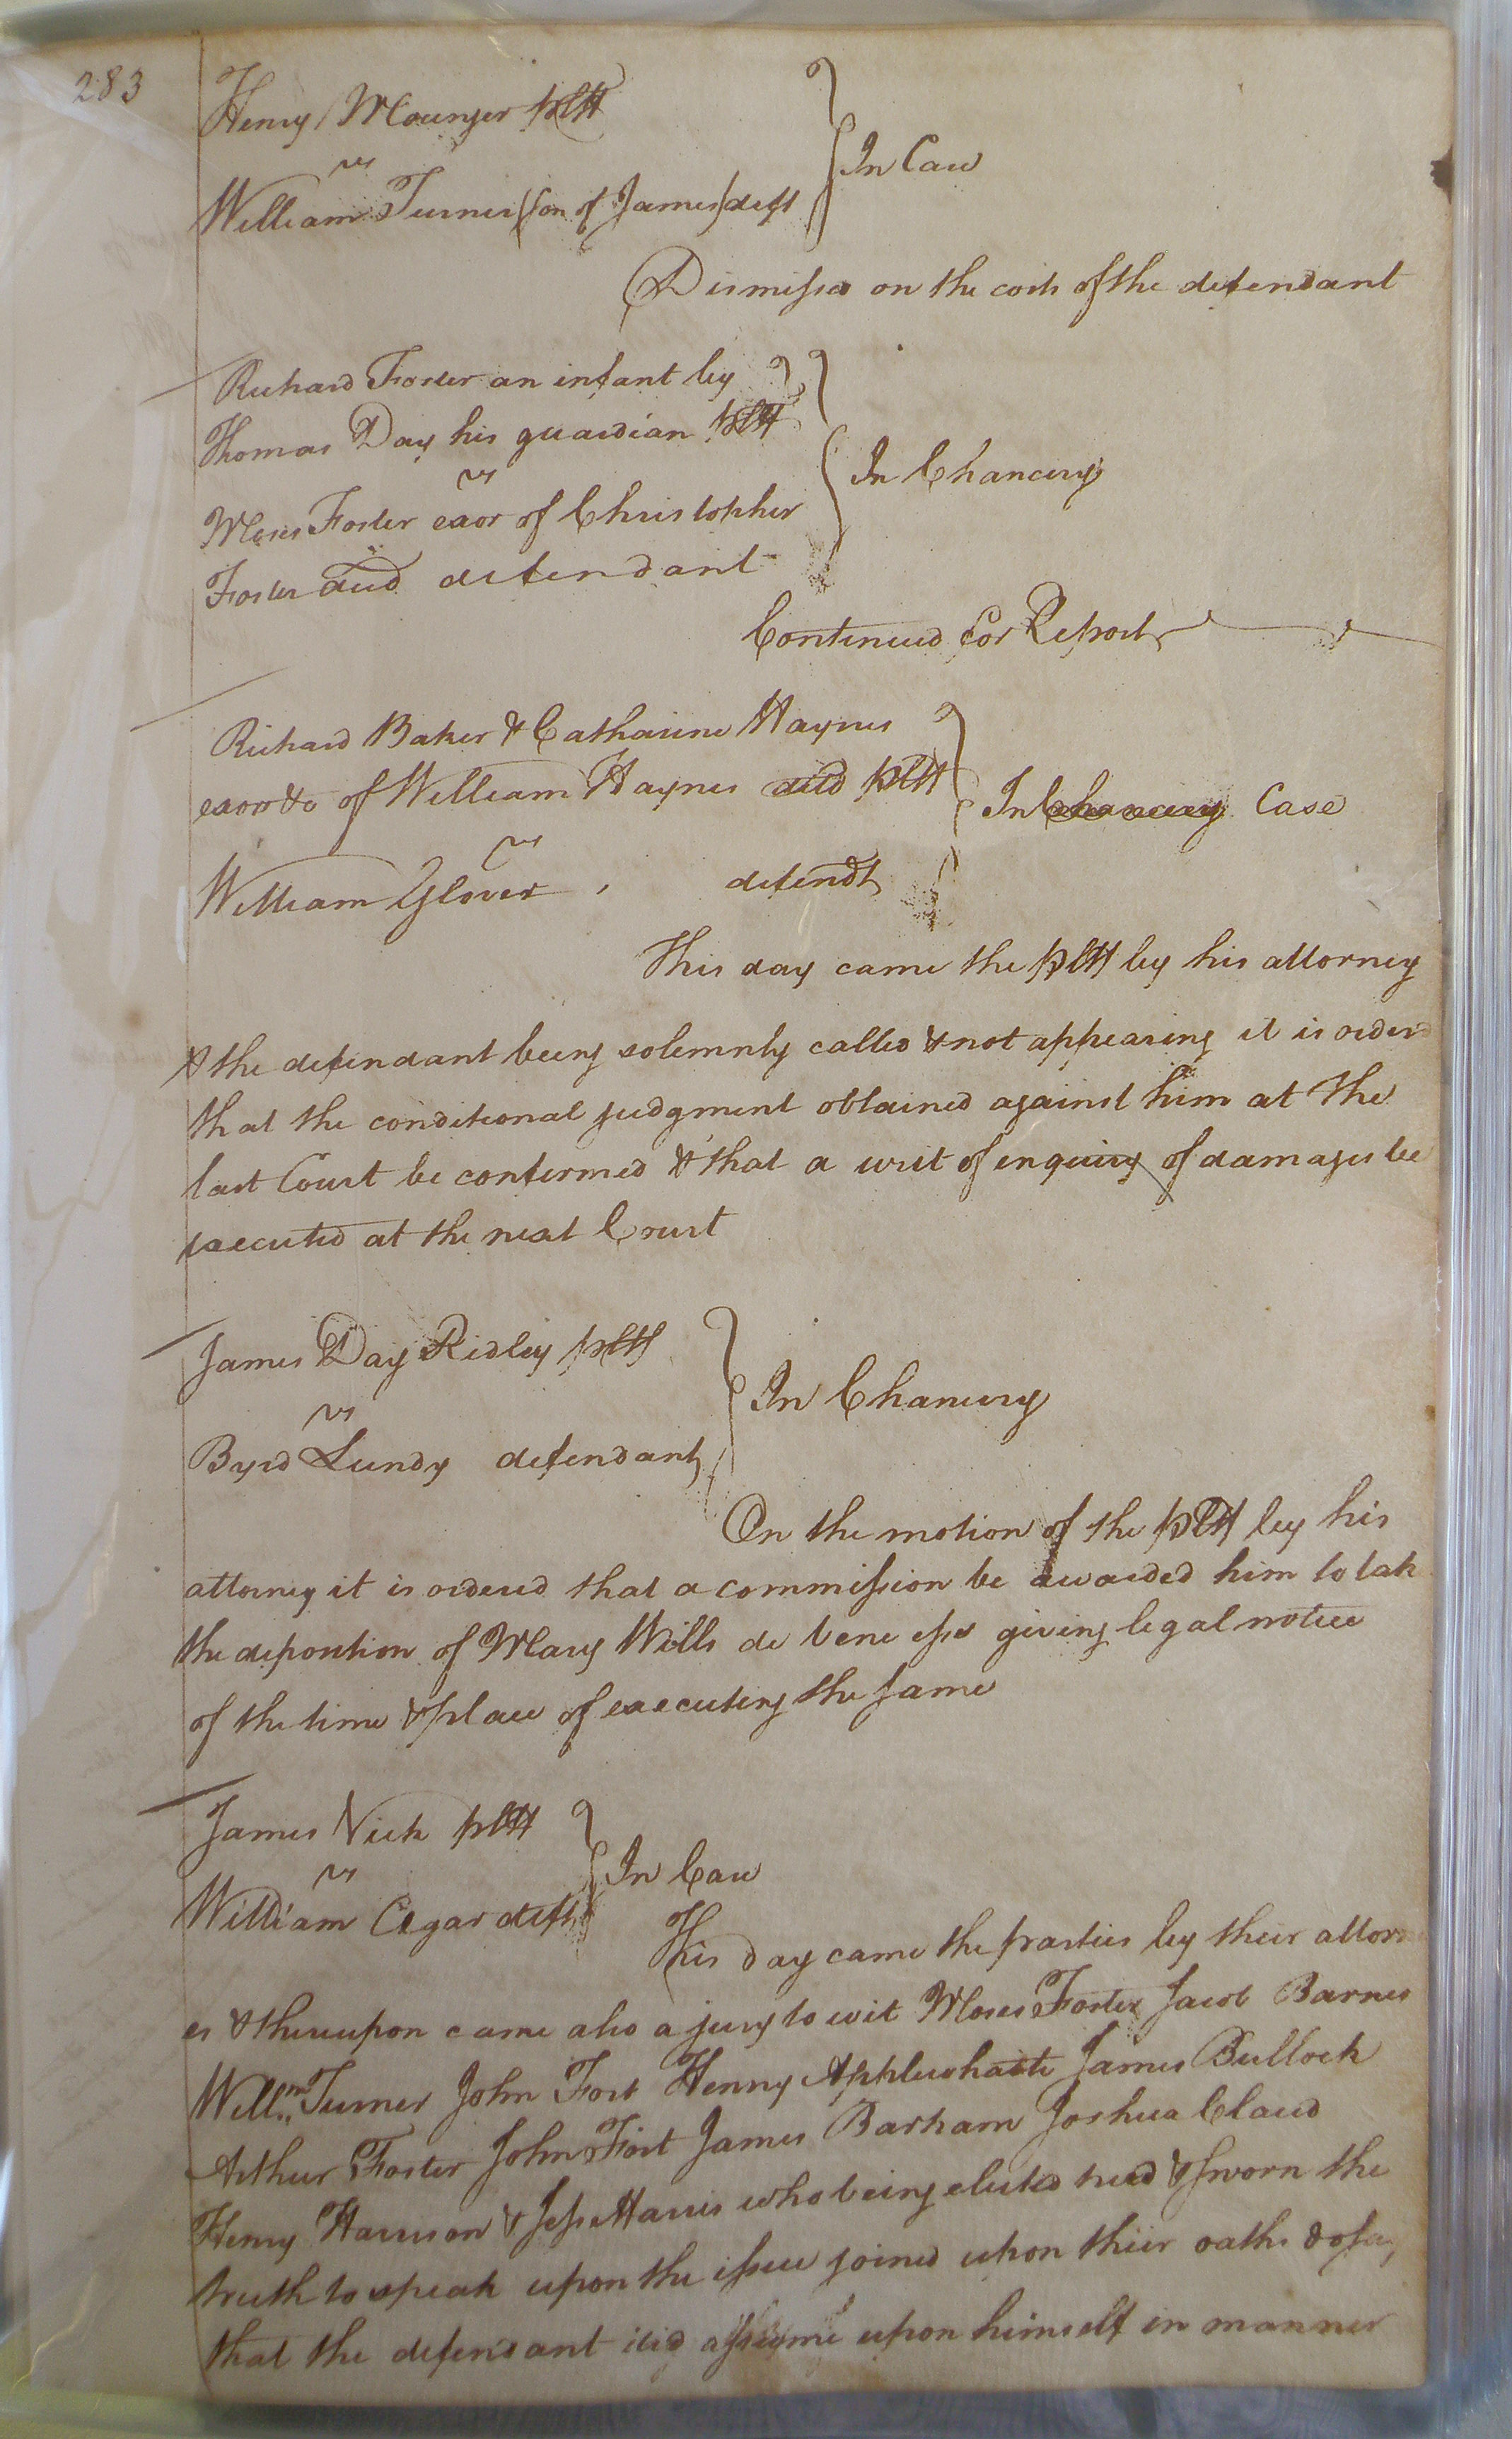 283
Henry Mounger pltf
vs
William Turner (son of James) deft
In Case
Dismissd on the costs of the defendant
Richard Foster an infant by
Thomas Day his guardian pltf
vs
Moses Foster exor of Christopher
Foster decd defendant
In Chancery
Continued for Report
Richard Baker & Catharine Haynes
exors &c of William Haynes decd pltf
vs
William Glover defendt
In Chancery Case
This day came the pltf by his attorney
& the defendant being solemnly called & not appearing it is orderd
that the conditional judgment obtained against him at the
last Court be confirmed & that a writ of enquiry of damages be
executed at the next Court
James Day Ridley pltf
vs
Byrd Lundy defendant
In Chancery
On the motion of the pltf by his
attorney it is ordered that a commission be awarded him to take
the deposition of Mary Wills de bene esse giving legal notice
of the time & place of executing the same
James Vick pltf
vs
William deft
In Case
This day came the parties by their attorn
es & thereupon came also a jury to wit Moses Foster Jacob Barnes
Willm Turner John Fort Henry Applewhaite James Bullock
Arthur Foster John Fort James Barham Joshua Claud
Henry Harrison & Jesse Harris who being elected tried & sworn the
truth to speak upon the issue joined upon their oaths do say
that the defendant did assume upon himself in manner